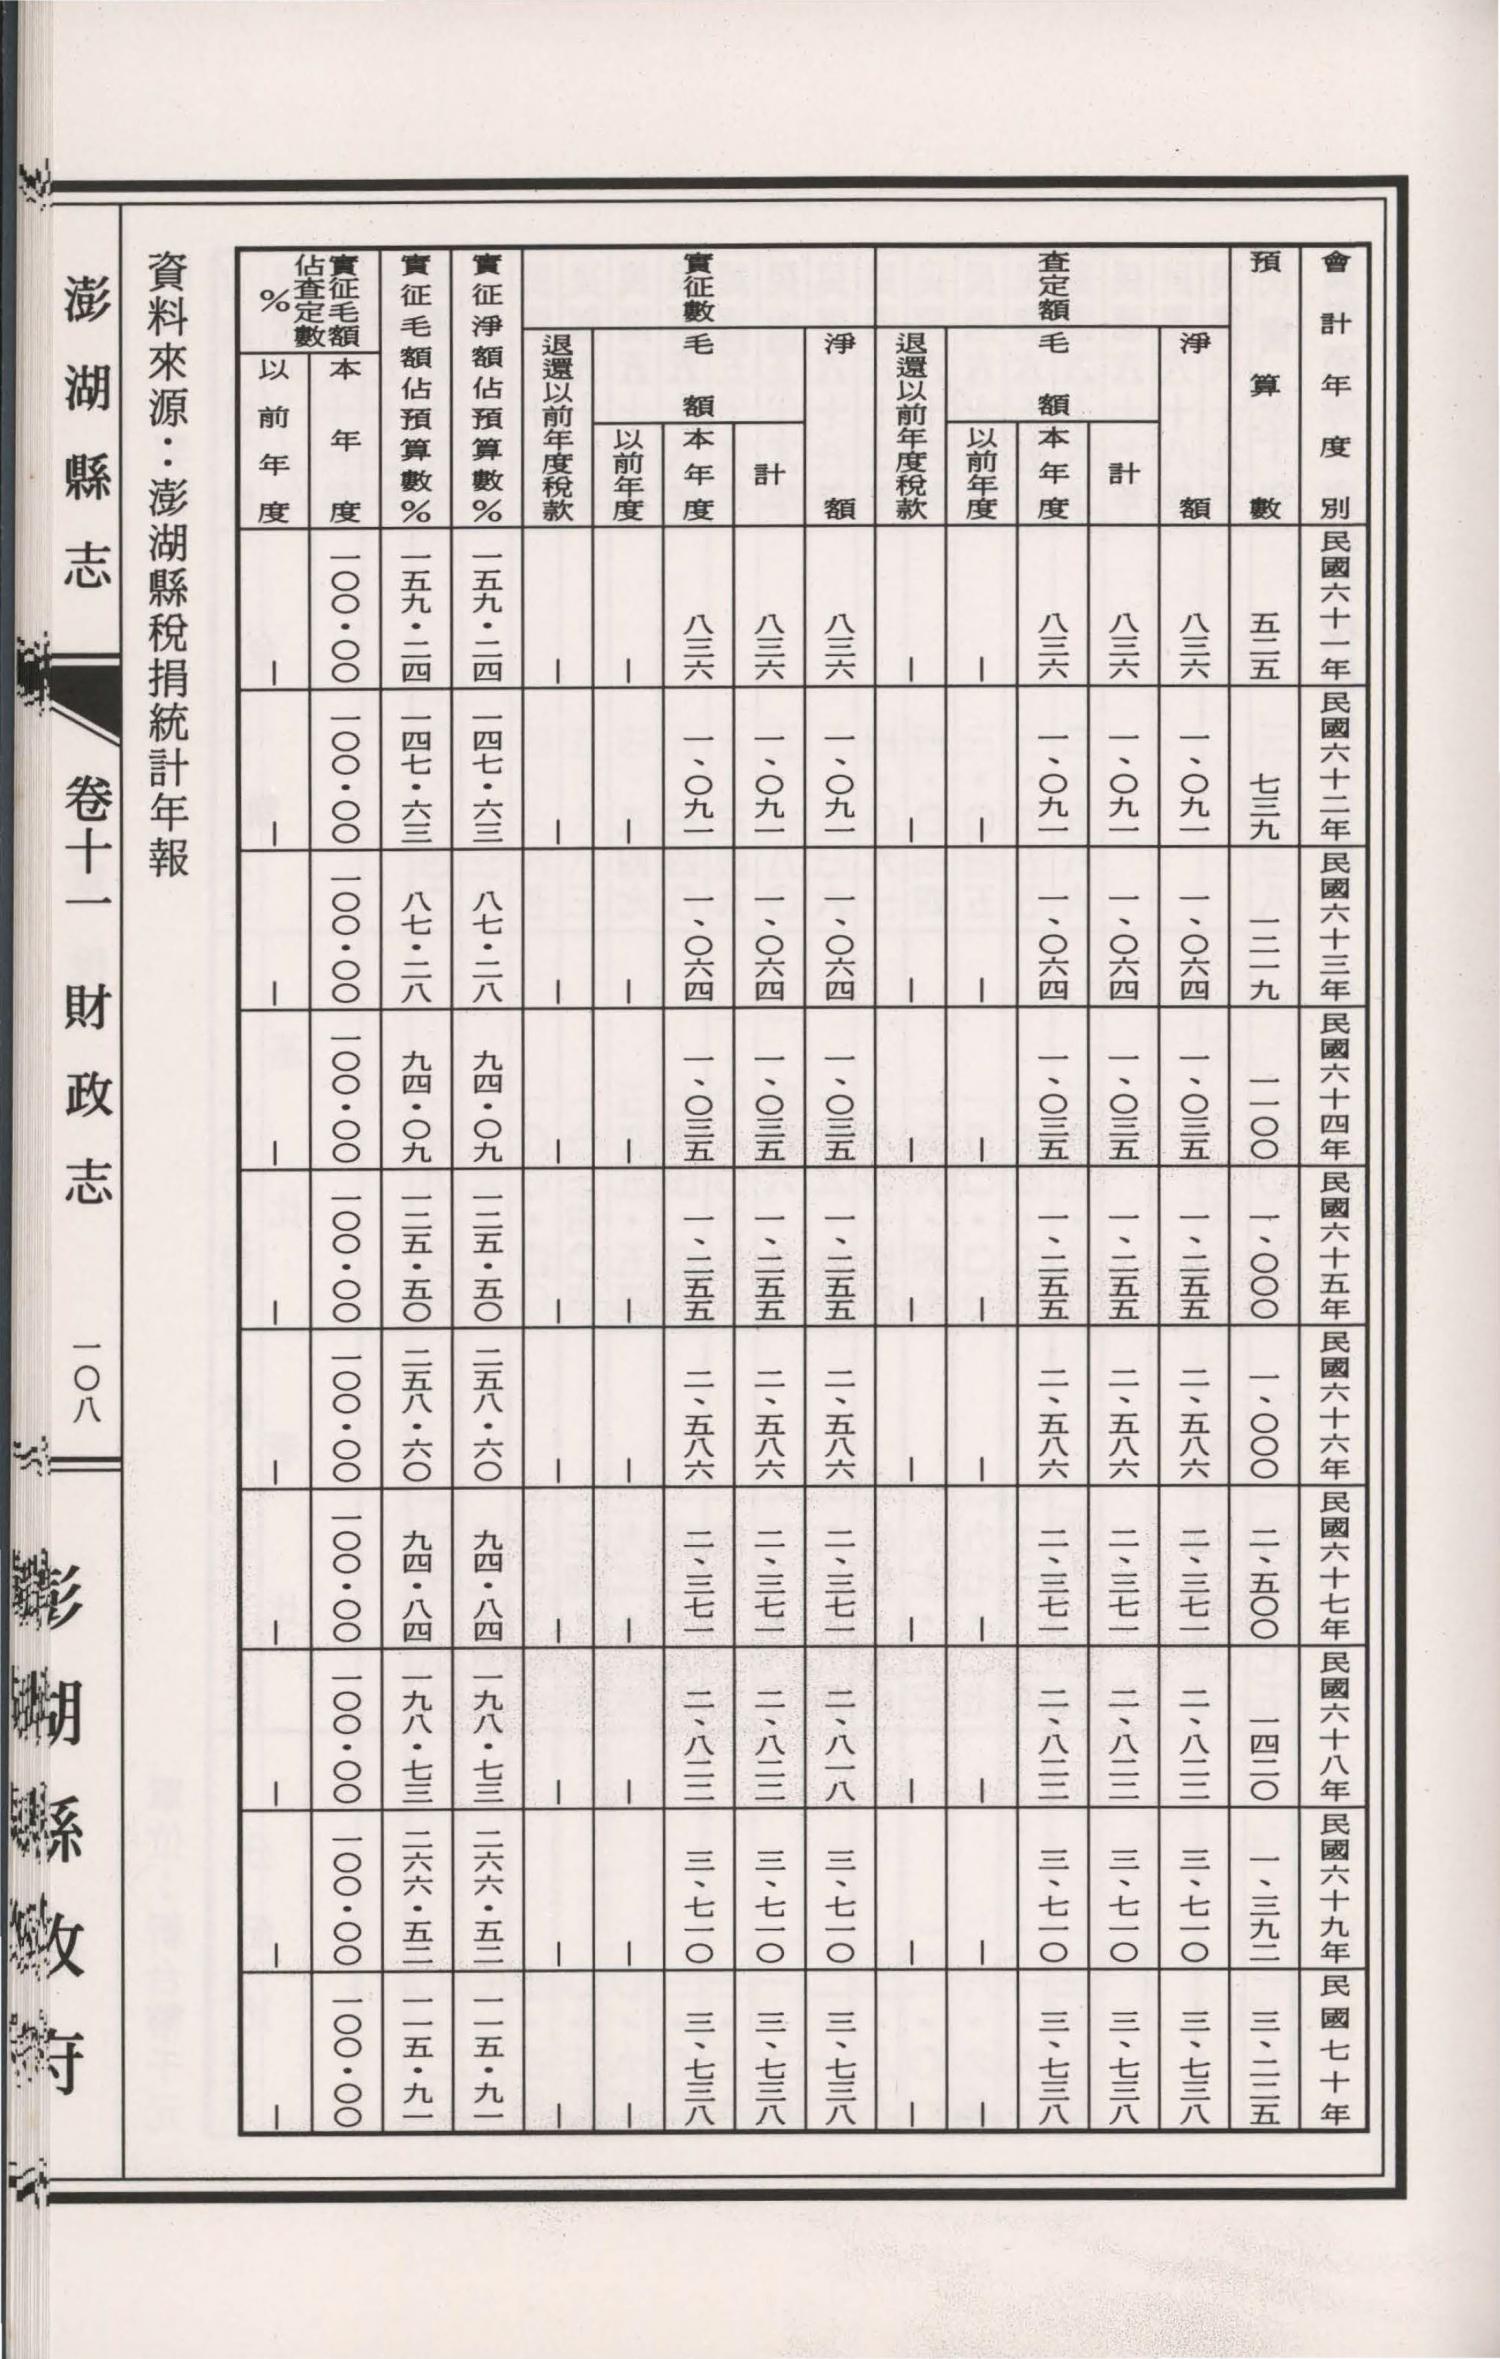 會計年度別 民國六十一年 民國六十二年 民國六十三年 民國六十四年 民國六十五年 民國六十六年 民國六十七年 民國六十八年 民國六十九年 民國七十年
預算數 五二五 七三九 一二一九 一一〇〇 一、〇〇〇 一、〇〇〇 二、五〇〇 一四二〇 一、三九二 三、二二五
查定額
淨額 八三六 一、〇九一 一、〇六四 一、〇三五 一、二五五 二、五八六 二、三七一 二、八二二 三、七一〇 三、七三八
毛額
計 八三六 一、〇九一 一、〇六四 一、〇三五 一、二五五 二、五八六 二、三七一 二、八二二 三、七一〇 三、七三八
本年度 八三六 一、〇九一 一、〇六四 一、〇三五 一、二五五 二、五八六 二、三七一 二、八二二 三、七一〇 三、七三八
以前年度 — — — — — — — — — —
退還以前年度稅款 — — — — — — — — — —
實征數
淨額 八三六 一、〇九一 一、〇六四 一、〇三五 一、二五五 二、五八六 二、三七一 二、八一八 三、七一〇 三、七三八
毛額
計 八三六 一、〇九一 一、〇六四 一、〇三五 一、二五五 二、五八六 二、三七一 二、八二二 三、七一〇 三、七三八
本年度 八三六 一、〇九一 一、〇六四 一、〇三五 一、二五五 二、五八六 二、三七一 二、八二二 三、七一〇 三、七三八
以前年度 — — — — — — — — — —
退還以前年度稅款 — — — — — — — — — —
實征淨額佔預算數% 一五九·二四 一四七·六三 八七·二八 九四·〇九 一二五·五〇 二五八·六〇 九四·八四 一九八·七三 二六六·五二 一一五·九一
實征毛額佔預算數% 一五九·二四 一四七·六三 八七·二八 九四·〇九 一二五·五〇 二五八·六〇 九四·八四 一九八·七三 二六六·五二 一一五·九一
實征毛額
佔查定數
%
本年度 一〇〇·〇〇 一〇〇·〇〇 一〇〇·〇〇 一〇〇·〇〇 一〇〇·〇〇 一〇〇·〇〇 一〇〇·〇〇 一〇〇·〇〇 一〇〇·〇〇 一〇〇·〇〇
以前年度 — — — — — — — — — —
資料來源：澎湖縣稅捐統計年報
澎湖縣志
卷十一財政志
一〇八
澎湖縣政府